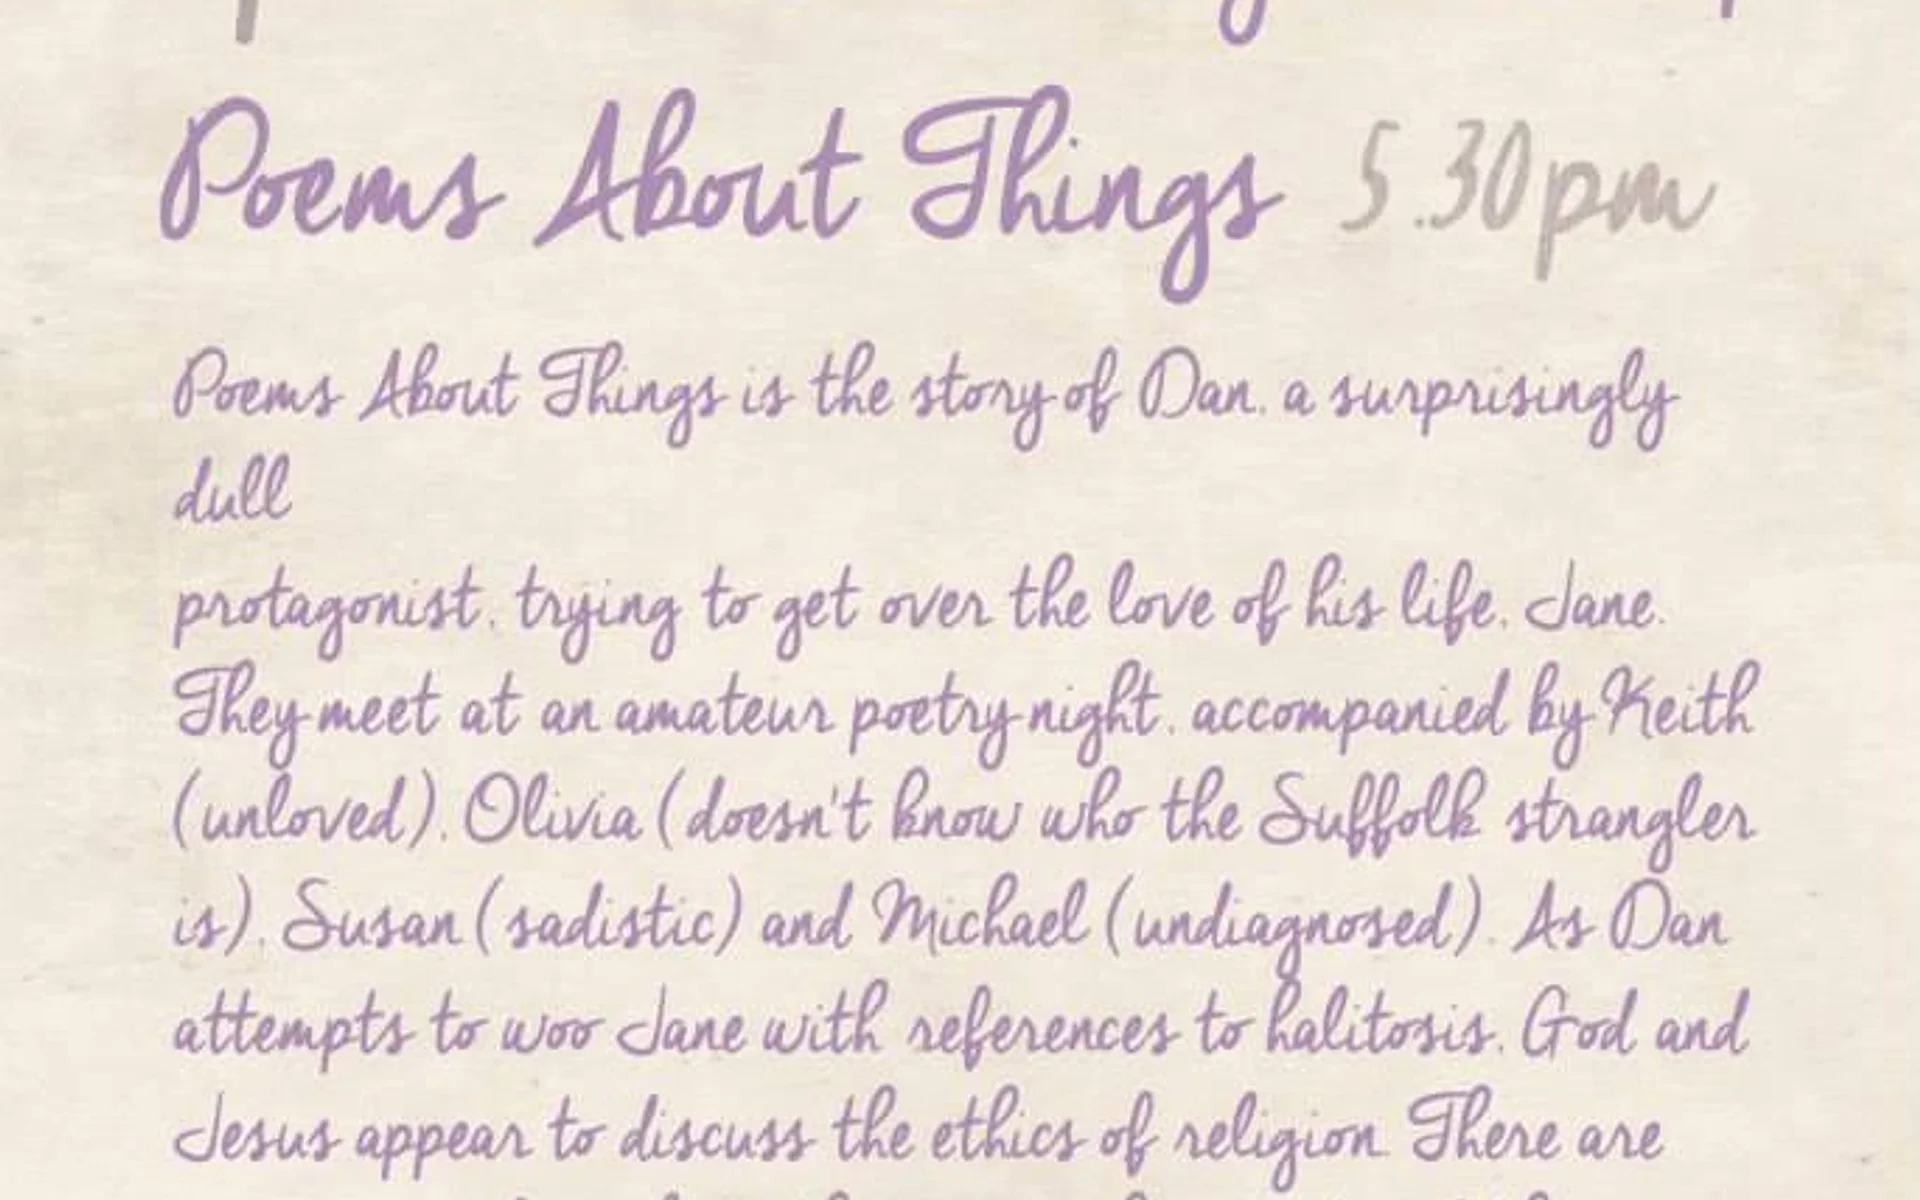 Poems About Things 5.30pm
Poems About Things is the story of Dan, a surprisingly
dull
protagonist, trying to get over the love of his life, Jane.
They meet at an amateur poetry night, accompanied by Keith
(unloved), Olivia (doesn't know who the Suffolk strangler
is), Susan (sadistic) and Michael (undiagnosed). As Dan
attempts to woo Jane with references to halitosis, God and
Jesus appear to discuss the ethics of religion. There are